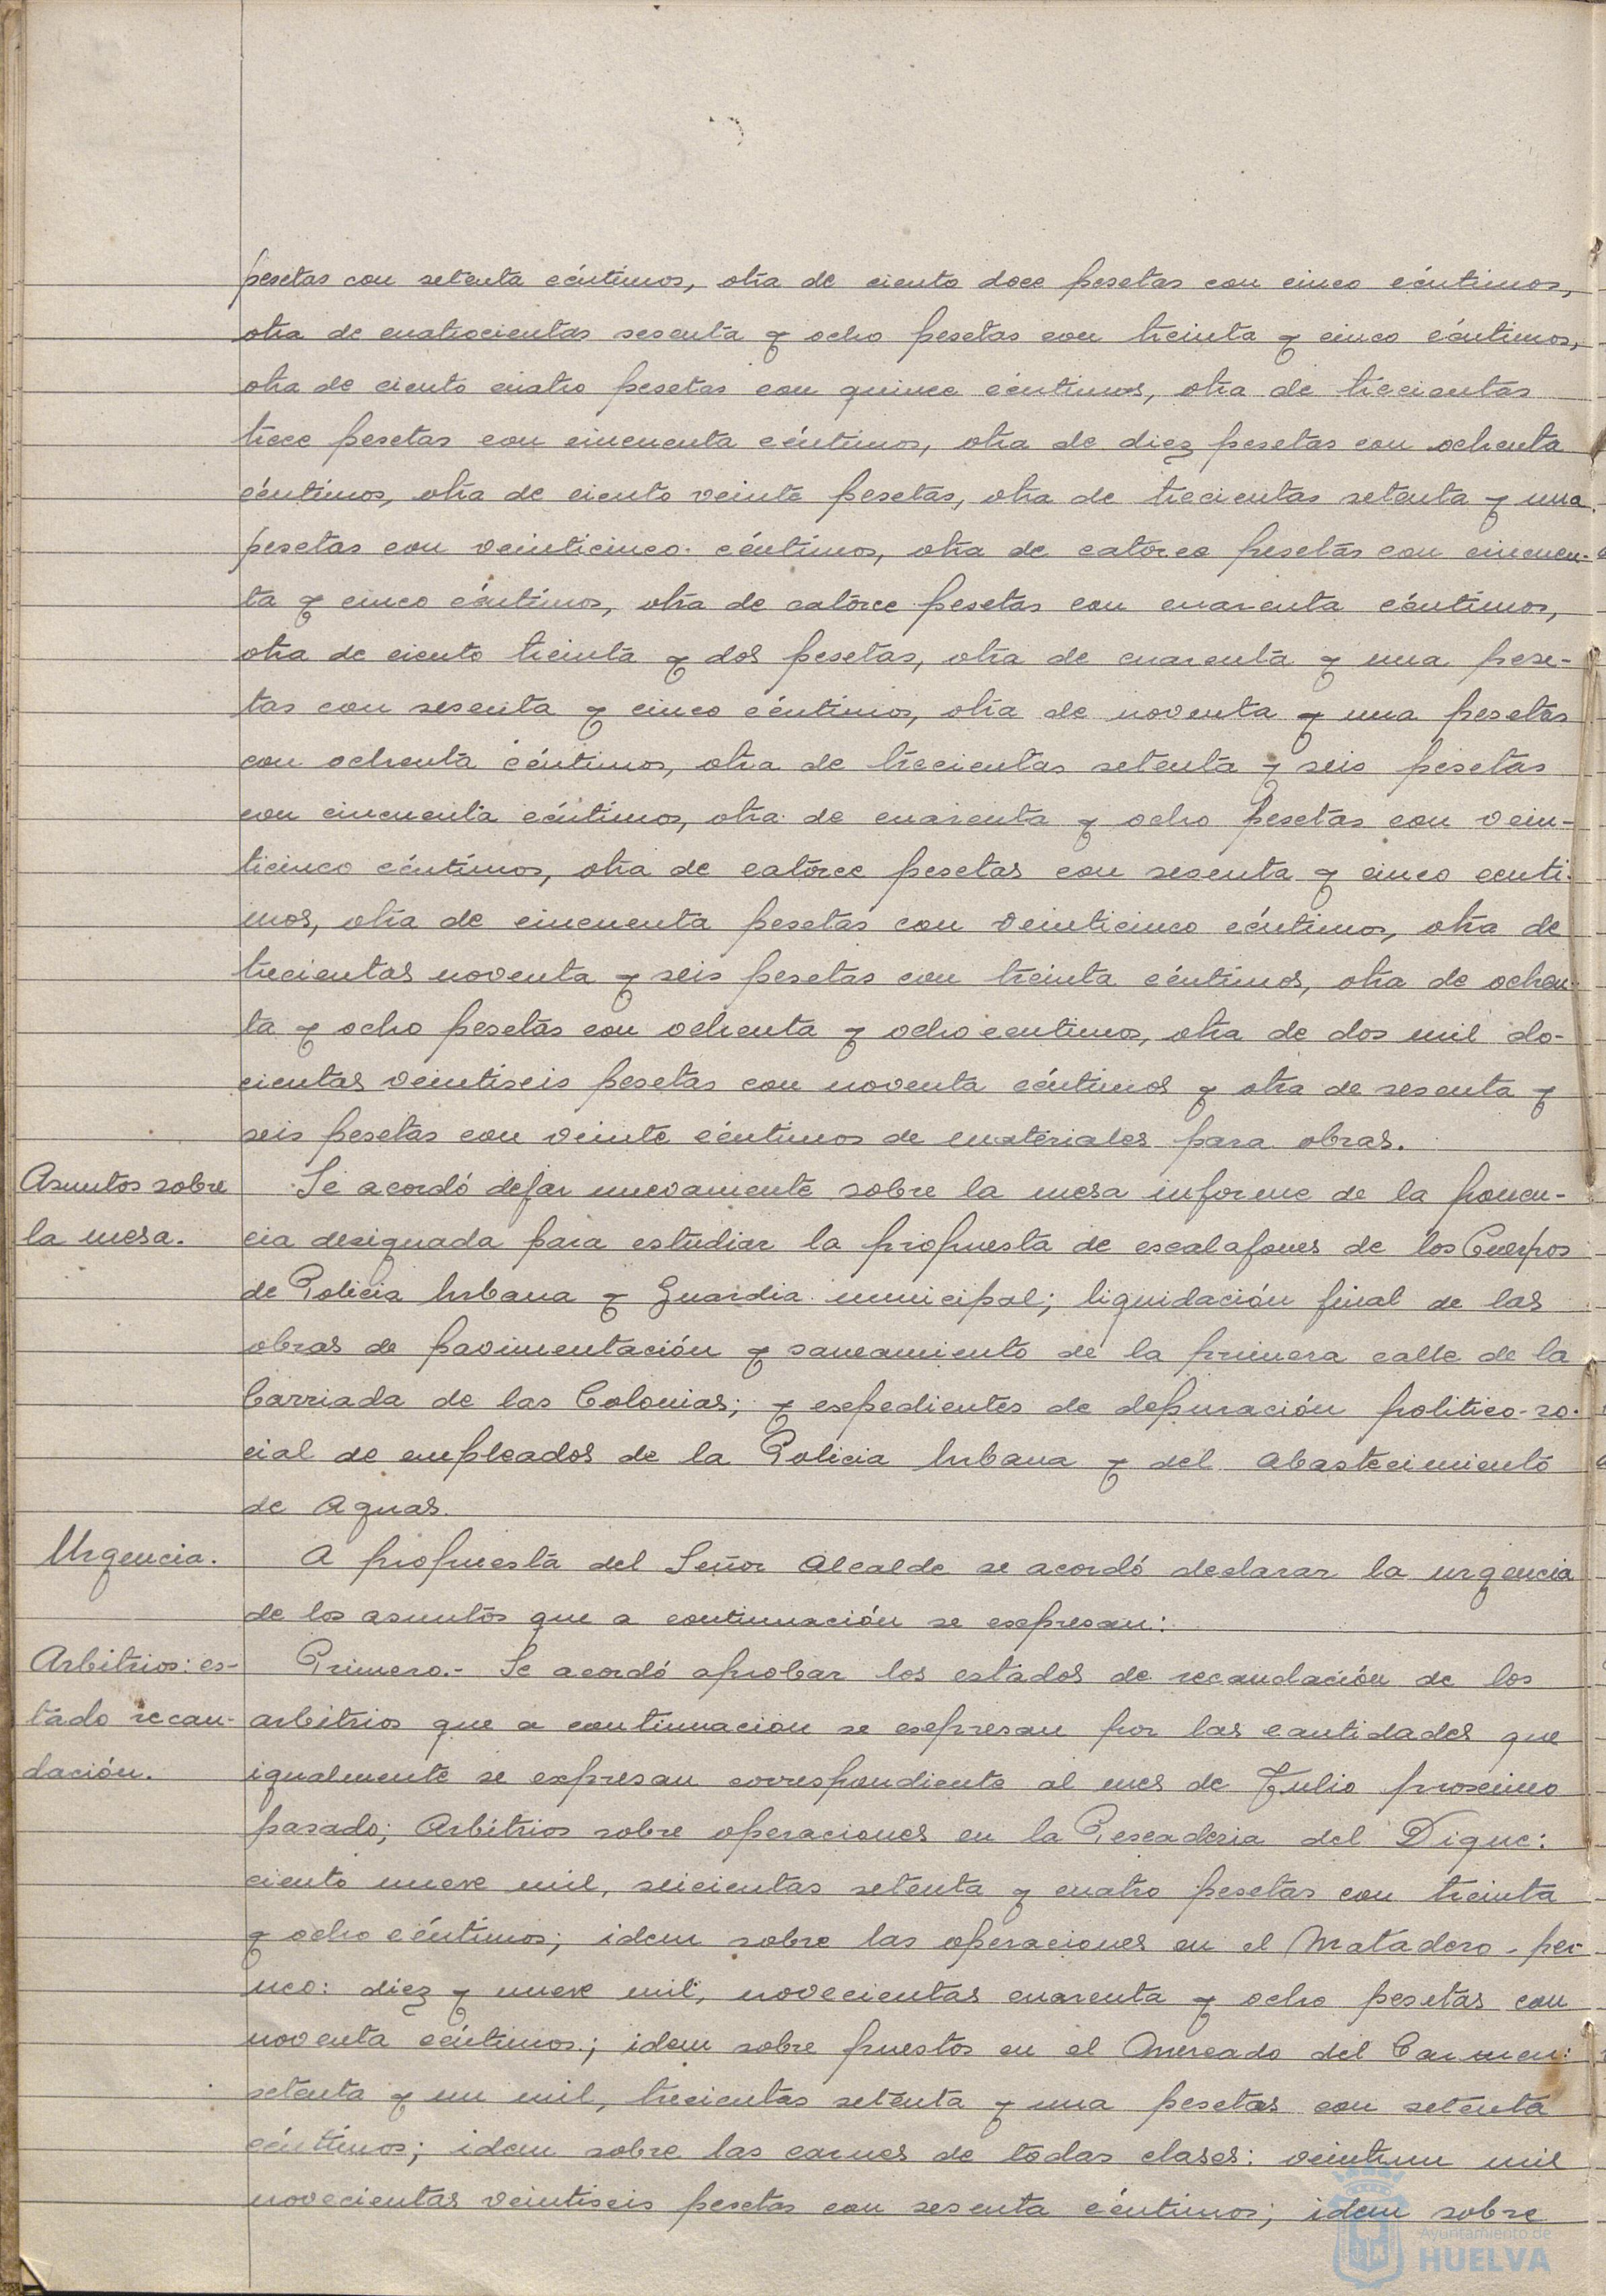 pesetas con setenta céntimos, otra de ciento doce pesetas con cinco céntimos,
otra de cuatrocientas sesenta y ocho pesetas con treinta y cinco céntimos,
otra de ciento cuatro pesetas con quince céntimos, otra de trecientas
trece pesetas con cincuenta céntimos, otra de diez pesetas con ochenta
céntimos, otra de ciento veinte pesetas, otra de trecientas setenta y una
pesetas con veinticinco céntimos, otra de catorce pesetas con cincuen-
ta y cinco céntimos, otra de catorce pesetas con cuarenta céntimos,
otra de ciento treinta y dos pesetas, otra de cuarenta y una pese-
tas con sesenta y cinco céntimos, otra de noventa y una pesetas
con ochenta céntimos, otra de trecientas setenta y seis pesetas
con cincuenta céntimos, otra de cuarenta y ocho pesetas con vein-
ticinco céntimos, otra de catorce pesetas con sesenta y cinco centi-
mos, otra de cincuenta pesetas con veinticinco céntimos, otra de
trecientas noventa y seis pesetas con treinta céntimos, otra de ochen-
ta y ocho pesetas con ochenta y ocho centimos, otra de dos mil do-
cientas veintiseis pesetas con noventa céntimos y otra de sesenta y
seis pesetas con veinte céntimos de materiales para obras.
Asuntos sobre
la mesa.
Se acordó dejar nuevamente sobre la mesa informe de la ponen-
cia designada para estudiar la propuesta de escalafones de los Cuerpos
de Policia Urbana y Guardia municipal; liquidación final de las
obras de pavimentación y saneamiento de la primera calle de la
Barriada de las Colonias; y expedientes de depuración politico-so-
cial de empleados de la Policia Urbana y del Abastecimiento
de Aguas.
Urgencia.
A propuesta del Señor Alcalde se acordó declarar la urgencia
de los asuntos que a continuación se expresan:
Arbitrios: es-
tado recau-
dación.
Primero.- Se acordó aprobar los estados de recaudación de los
arbitrios que a continuacion se expresan por las cantidades que
igualmente se expresan correspondiente al mes de Julio proximo
pasado; Arbitrios sobre operaciones en la Pescaderia del Dique:
ciento nueve mil, seicientas setenta y cuatro pesetas con treinta
y ocho céntimos; idem sobre las operaciones en el Matadero-per-
neo: diez y nueve mil, novecientas cuarenta y ocho pesetas con
noventa céntimos; idem sobre puestos en el Mercado del Carmen:
setenta y un mil, trecientas setenta y una pesetas con setenta
céntimos; idem sobre las carnes de todas clases: veintiun mil
novecientas veintiseis pesetas con sesenta céntimos; idem sobre
Ayuntamiento de
HUELVA